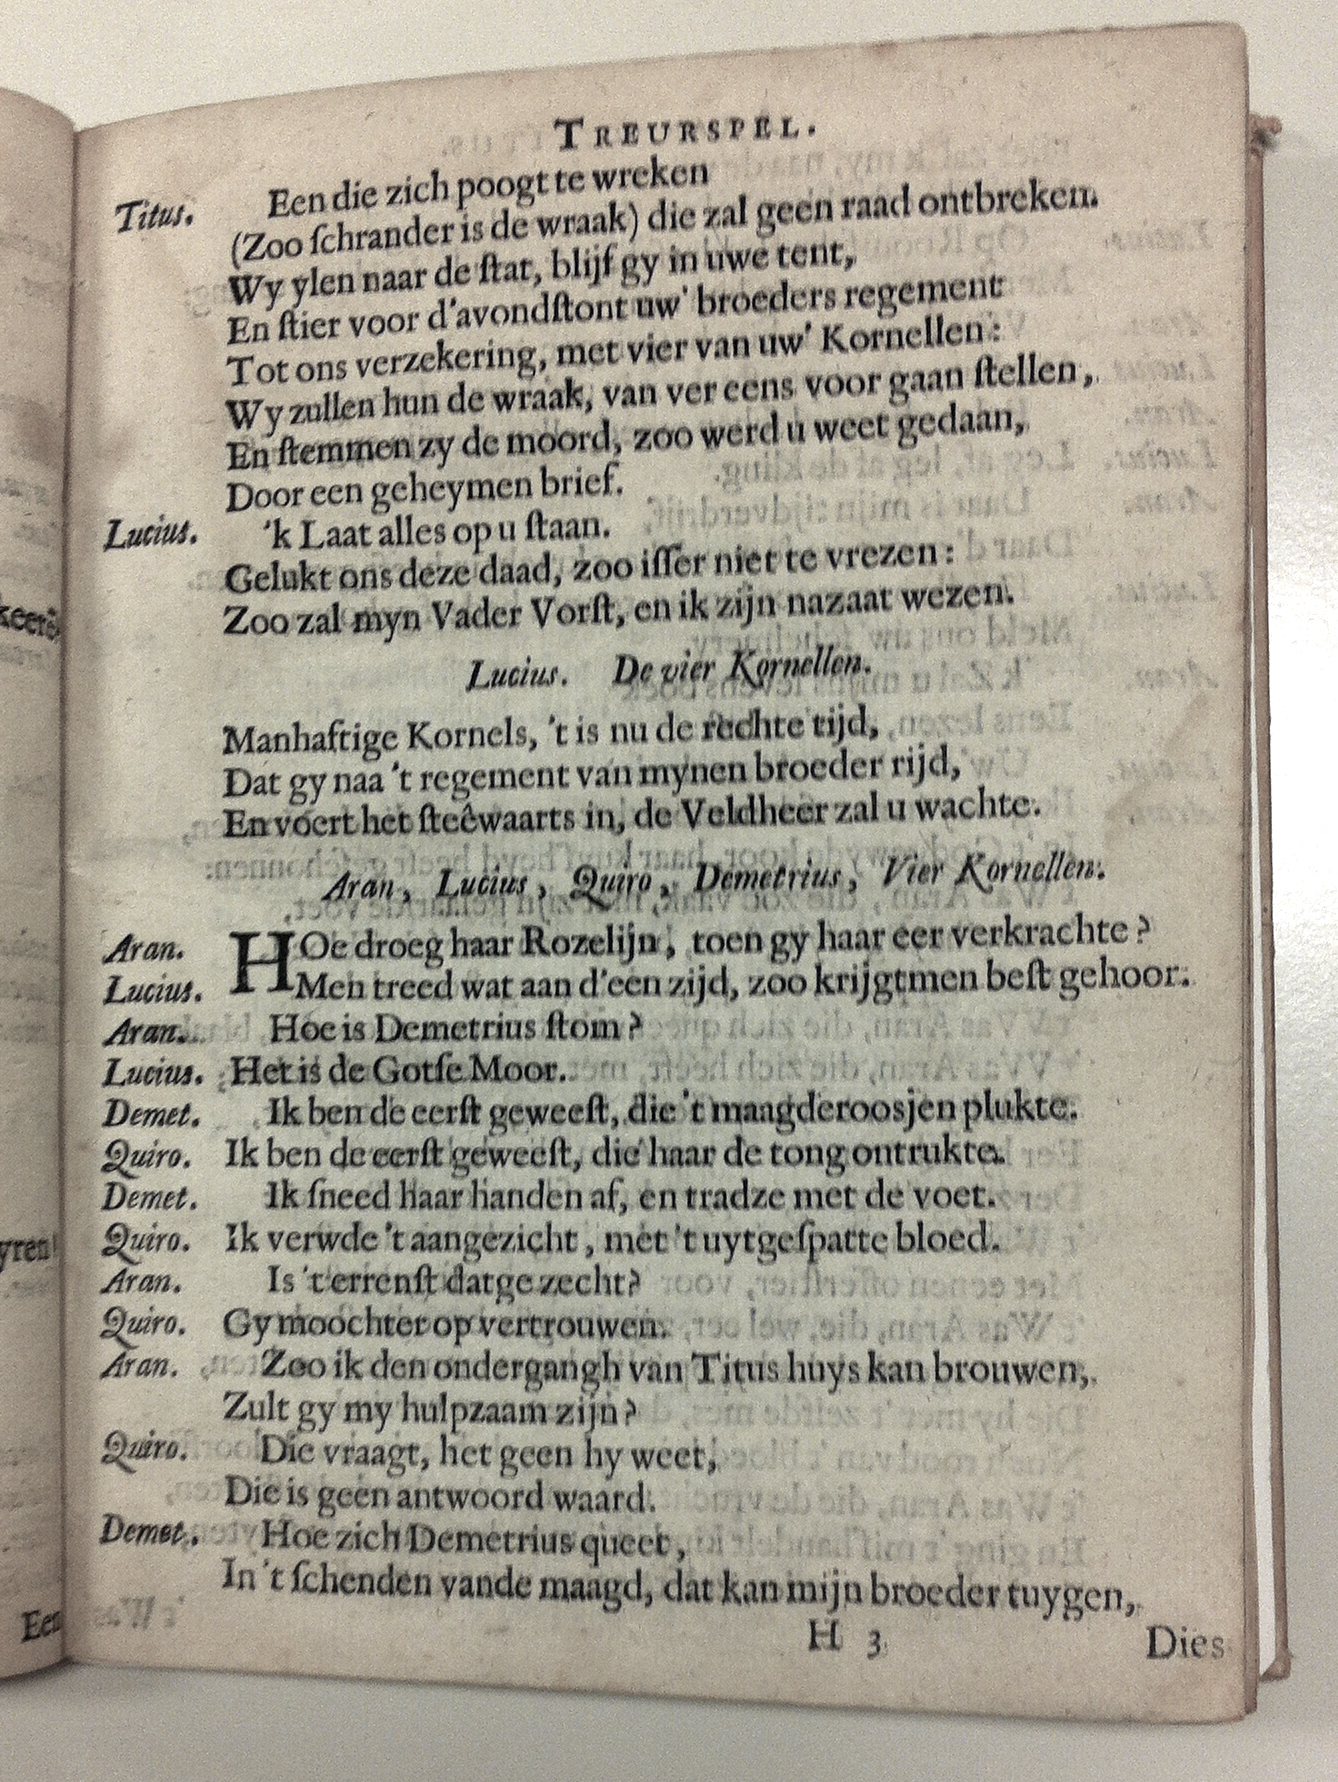 TREURSPEL.
Titus. Een die zich poogt te wreken
(Zoo ſchrander is de wraak) die zal geen raad ontbreken.
Wy ylen naar de ſtat, blijf gy in uwe tent,
En ſtier voor d'avondſtont uw' broeders regement
Tot ons verzekering, met vier van uw' Kornellen:
Wy zullen hun de wraak, van ver eens voor gaan ſtellen,
En ſtemmen zy de moord, zoo werd u weet gedaan,
Door een geheymen brief.
Lucius. 'k Laat alles op u ſtaan.
Gelukt ons deze daad, zoo iſſer niet te vrezen:
Zoo zal myn Vader Vorſt, en ik zijn nazaat wezen.
Lucius. De vier Kornellen.
Manhaftige Kornels, 't is nu de rechte tijd,
Dat gy naa 't regement van mynen broeder rijd,
En voert het ſteêwaarts in, de Veldheer zal u wachte.
Aran, Lucius, Quiro, Demetrius, Vier Kornellen.
Aran. HOe droeg haar Rozelijn, toen gy haar eer verkrachte?
Lucius. Men treed wat aan d'een zijd, zoo krijgtmen beſt gehoor.
Aran. Hoe is Demetrius ſtom?
Lucius. Het is de Gotſe Moor.
Demet. Ik ben de eerſt geweeſt, die 't maagderoosjen plukte.
Quiro. Ik ben de eerſt geweeſt, die haar de tong ontrukte.
Demet. Ik ſneed haar handen af, en tradze met de voet.
Quiro. Ik verwde 't aangezicht, met 't uytgeſpatte bloed.
Aran. Is 't errenſt datge zecht?
Quiro. Gy moochter op vertrouwen.
Aran. Zoo ik den ondergangh van Titus huys kan brouwen,
Zult gy my hulpzaam zijn?
Quiro. Die vraagt, het geen hy weet,
Die is geen antwoord waard.
Demet. Hoe zich Demetrius queet,
In 't ſchenden vande maagd, dat kan mijn broeder tuygen,
H 3
Dies
keerē
yren!
Een